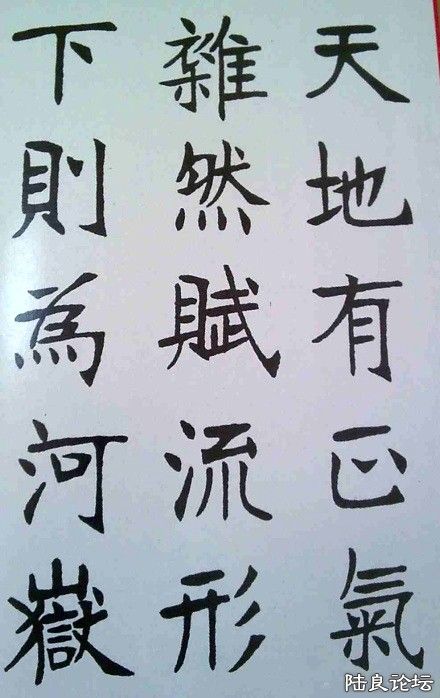 天地有正氣
雜然賦流形
下則為河嶽
陆良论坛